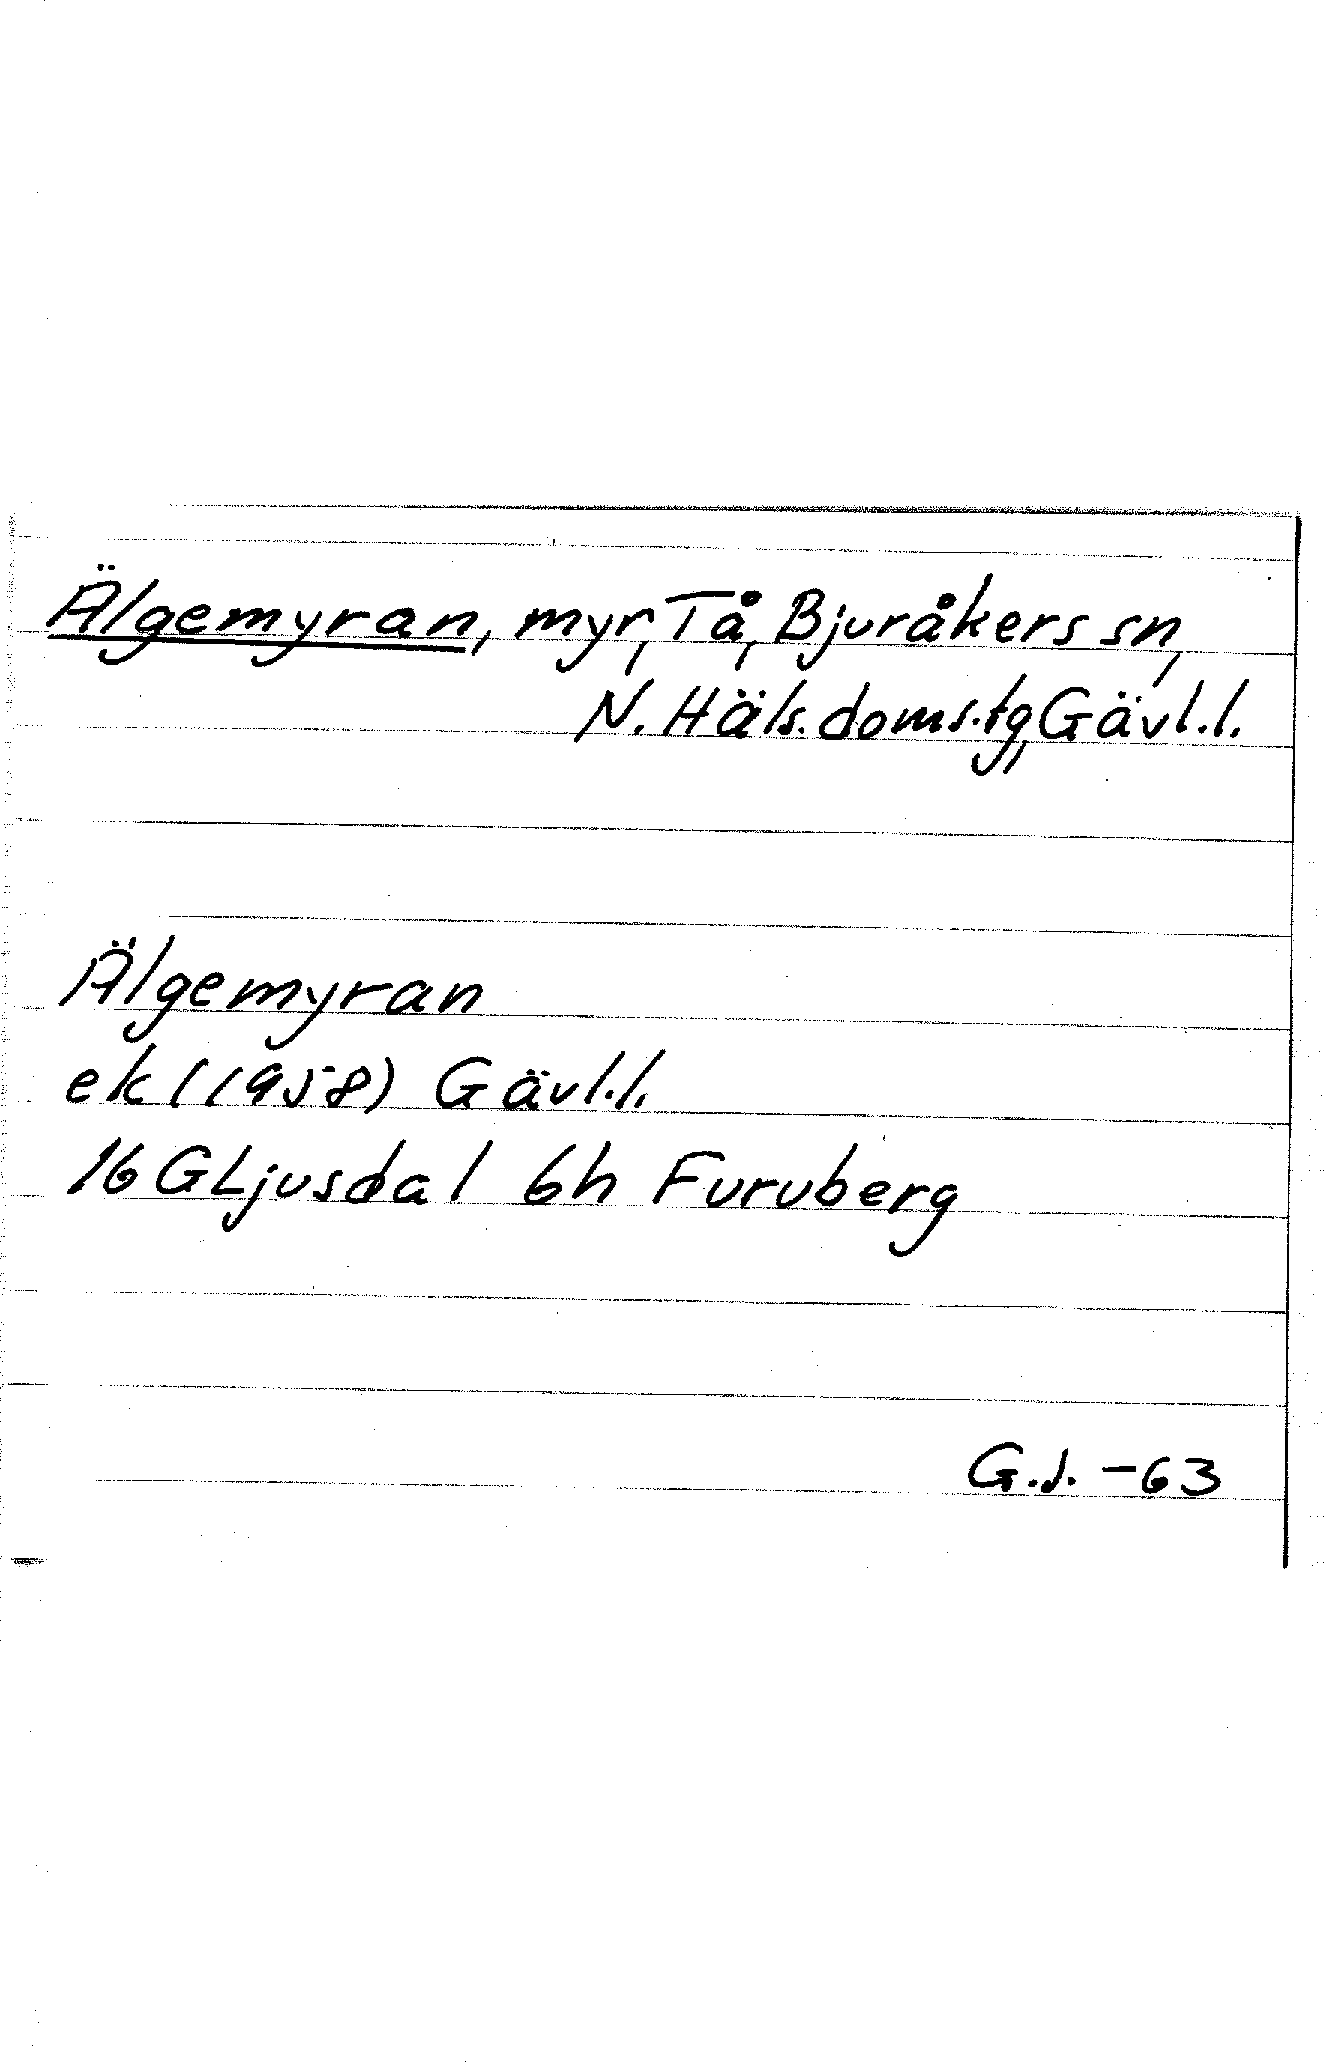 Älgemyran, myr, Tå, Bjuråkers sn,
N. Häls. doms.tg, Gävl.l.
Älgemyran
ek (1958) Gävl.l.
16 G Ljusdal 6h Furuberg
G.J. -63